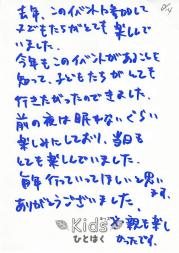 去年、このイベントに参加して
子どもたちがとても楽しんで
いました。
今年もこのイベントがあることを
知って、子どもたちがとても
行きたがったのできました。
前の夜は眠れないぐらい
楽しみにしており、当日も
とても楽しんでいました。
毎年行っていってほしいと思い
ます。
ありがとうございました。
親も楽し
かったです。
Kids
ひとはく